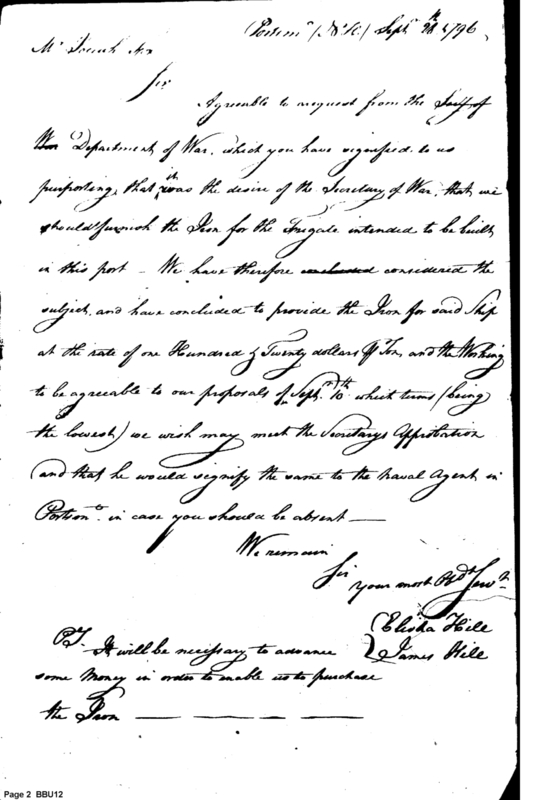 Portsmo (N.H.) Septr 1796
Mr Josiah Fox
Sir
Agreable to request from the
Department of War, which you have signified to us
purporting, that it was the desire of the Secretary of War, that we
should furnish the Iron for the Frigate intended to be built
in this port — We have therefore considered the
subject, and have concluded to provide the Iron for said Ship
at the rate of one Hundred & Twenty dollars Pr Ton, and the Working
to be agreeable to our proposals of Septr 10th which terms (being
the lowest) we wish may meet the Secretarys Approbation
and that he would signify the same to the Naval Agent in
Portsmo in case you should be absent —
We remain
Sir
your most Obdt Servts
Elisha Hill
James Hill
PS. It will be necessary to advance
some Money in order to enable us to purchase
the Iron — — — — —
Page 2 BBU12